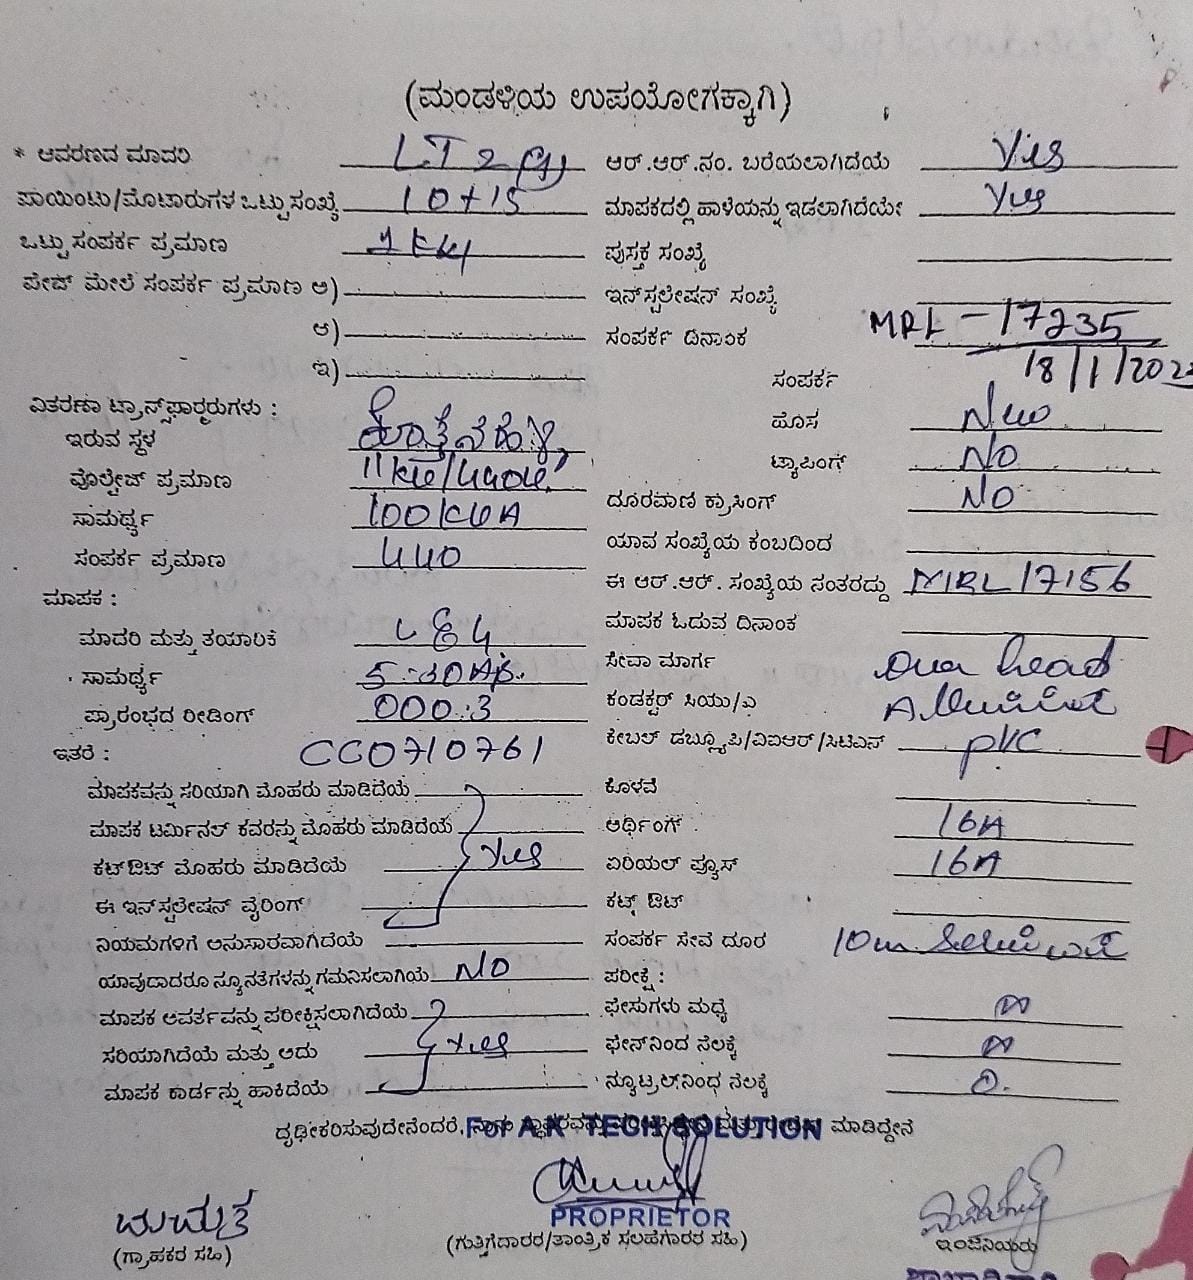 (ಮಂಡಳಿಯ ಉಪಯೋಗಕ್ಕಾಗಿ)
* ಆವರಣದ ಮಾದರಿ LT 2
ಪಾಯಿಂಟು/ಮೋಟಾರುಗಳ ಒಟ್ಟು ಸಂಖ್ಯೆ 10+15
ಒಟ್ಟು ಸಂಪರ್ಕ ಪ್ರಮಾಣ 1 KW
ಪೇಜ್ ಮೇಲೆ ಸಂಪರ್ಕ ಪ್ರಮಾಣ ಅ)
ಆ)
ಇ)
ವಿತರಣಾ ಟ್ರಾನ್ಸ್‌ಫಾರ್ಮರುಗಳು :
ಇರುವ ಸ್ಥಳ
ವೊಲ್ಟೇಜ್ ಪ್ರಮಾಣ 11KV/440V
ಸಾಮರ್ಥ್ಯ 100 KVA
ಸಂಪರ್ಕ ಪ್ರಮಾಣ 440
ಮಾಪಕ :
ಮಾದರಿ ಮತ್ತು ತಯಾರಿಕೆ L&
ಸಾಮರ್ಥ್ಯ 5-30A
ಪ್ರಾರಂಭದ ರೀಡಿಂಗ್ 000.3
ಇತರೆ : CC0710761
ಮಾಪಕವನ್ನು ಸರಿಯಾಗಿ ಮೊಹರು ಮಾಡಿದೆಯೆ
ಮಾಪಕ ಟರ್ಮಿನಲ್ ಕವರನ್ನು ಮೊಹರು ಮಾಡಿದೆಯೆ
ಕಟ್‌ಔಟ್ ಮೊಹರು ಮಾಡಿದೆಯೆ Yes
ಈ ಇನ್‌ಸ್ಟಲೇಷನ್ ವೈರಿಂಗ್
ನಿಯಮಗಳಿಗೆ ಅನುಸಾರವಾಗಿದೆಯೆ
ಯಾವುದಾದರೂ ನ್ಯೂನತೆಗಳನ್ನು ಗಮನಿಸಲಾಗಿಯೆ NO
ಮಾಪಕ ಆವರ್ತವನ್ನು ಪರೀಕ್ಷಿಸಲಾಗಿದೆಯೆ
ಸರಿಯಾಗಿದೆಯೆ ಮತ್ತು ಅದು Yes
ಮಾಪಕ ಕಾರ್ಡನ್ನು ಹಾಕಿದೆಯೆ
ಆರ್.ಆರ್.ನಂ. ಬರೆಯಲಾಗಿದೆಯೆ Yes
ಮಾಪಕದಲ್ಲಿ ಹಾಳೆಯನ್ನು ಇಡಲಾಗಿದೆಯೇ Yes
ಪುಸ್ತಕ ಸಂಖ್ಯೆ
ಇನ್‌ಸ್ಟಲೇಷನ್ ಸಂಖ್ಯೆ
ಸಂಪರ್ಕ ದಿನಾಂಕ MRL-17235
18/1/202
ಸಂಪರ್ಕ
ಹೊಸ New
ಟ್ಯಾಪಿಂಗ್ NO
ದೂರವಾಣಿ ಕ್ರಾಸಿಂಗ್ NO
ಯಾವ ಸಂಖ್ಯೆಯ ಕಂಬದಿಂದ
ಈ ಆರ್.ಆರ್. ಸಂಖ್ಯೆಯ ನಂತರದ್ದು MRL 17156
ಮಾಪಕ ಓದುವ ದಿನಾಂಕ
ಸೇವಾ ಮಾರ್ಗ Over head
ಕಂಡಕ್ಟರ್ ಸಿಯು/ಎ
ಕೇಬಲ್ ಡಬ್ಲ್ಯೂಪಿ/ವಿಐಆರ್/ಸಿಟಿಎಸ್ PVC
ಕೊಳವೆ
ಅರ್ಥಿಂಗ್ 16A
ಏರಿಯಲ್ ಫ್ಯೂಸ್ 16A
ಕಟ್ಔಟ್
ಸಂಪರ್ಕ ಸೇವೆ ದೂರ 10m
ಪರೀಕ್ಷೆ :
ಫೇಸುಗಳು ಮಧ್ಯೆ
ಫೇಸ್‌ನಿಂದ ನೆಲಕ್ಕೆ
ನ್ಯೂಟ್ರಲ್‌ನಿಂಧ ನೆಲಕ್ಕೆ 0.
ದೃಢೀಕರಿಸುವುದೇನೆಂದರೆ, ಮಾಡಿದ್ದೇನೆ
For A.K TECH SOLUTION
PROPRIETOR
(ಗ್ರಾಹಕರ ಸಹಿ)
(ಗುತ್ತಿಗೆದಾರರ/ತಾಂತ್ರಿಕ ಸಲಹೆಗಾರರ ಸಹಿ)
ಇಂಜಿನಿಯರು